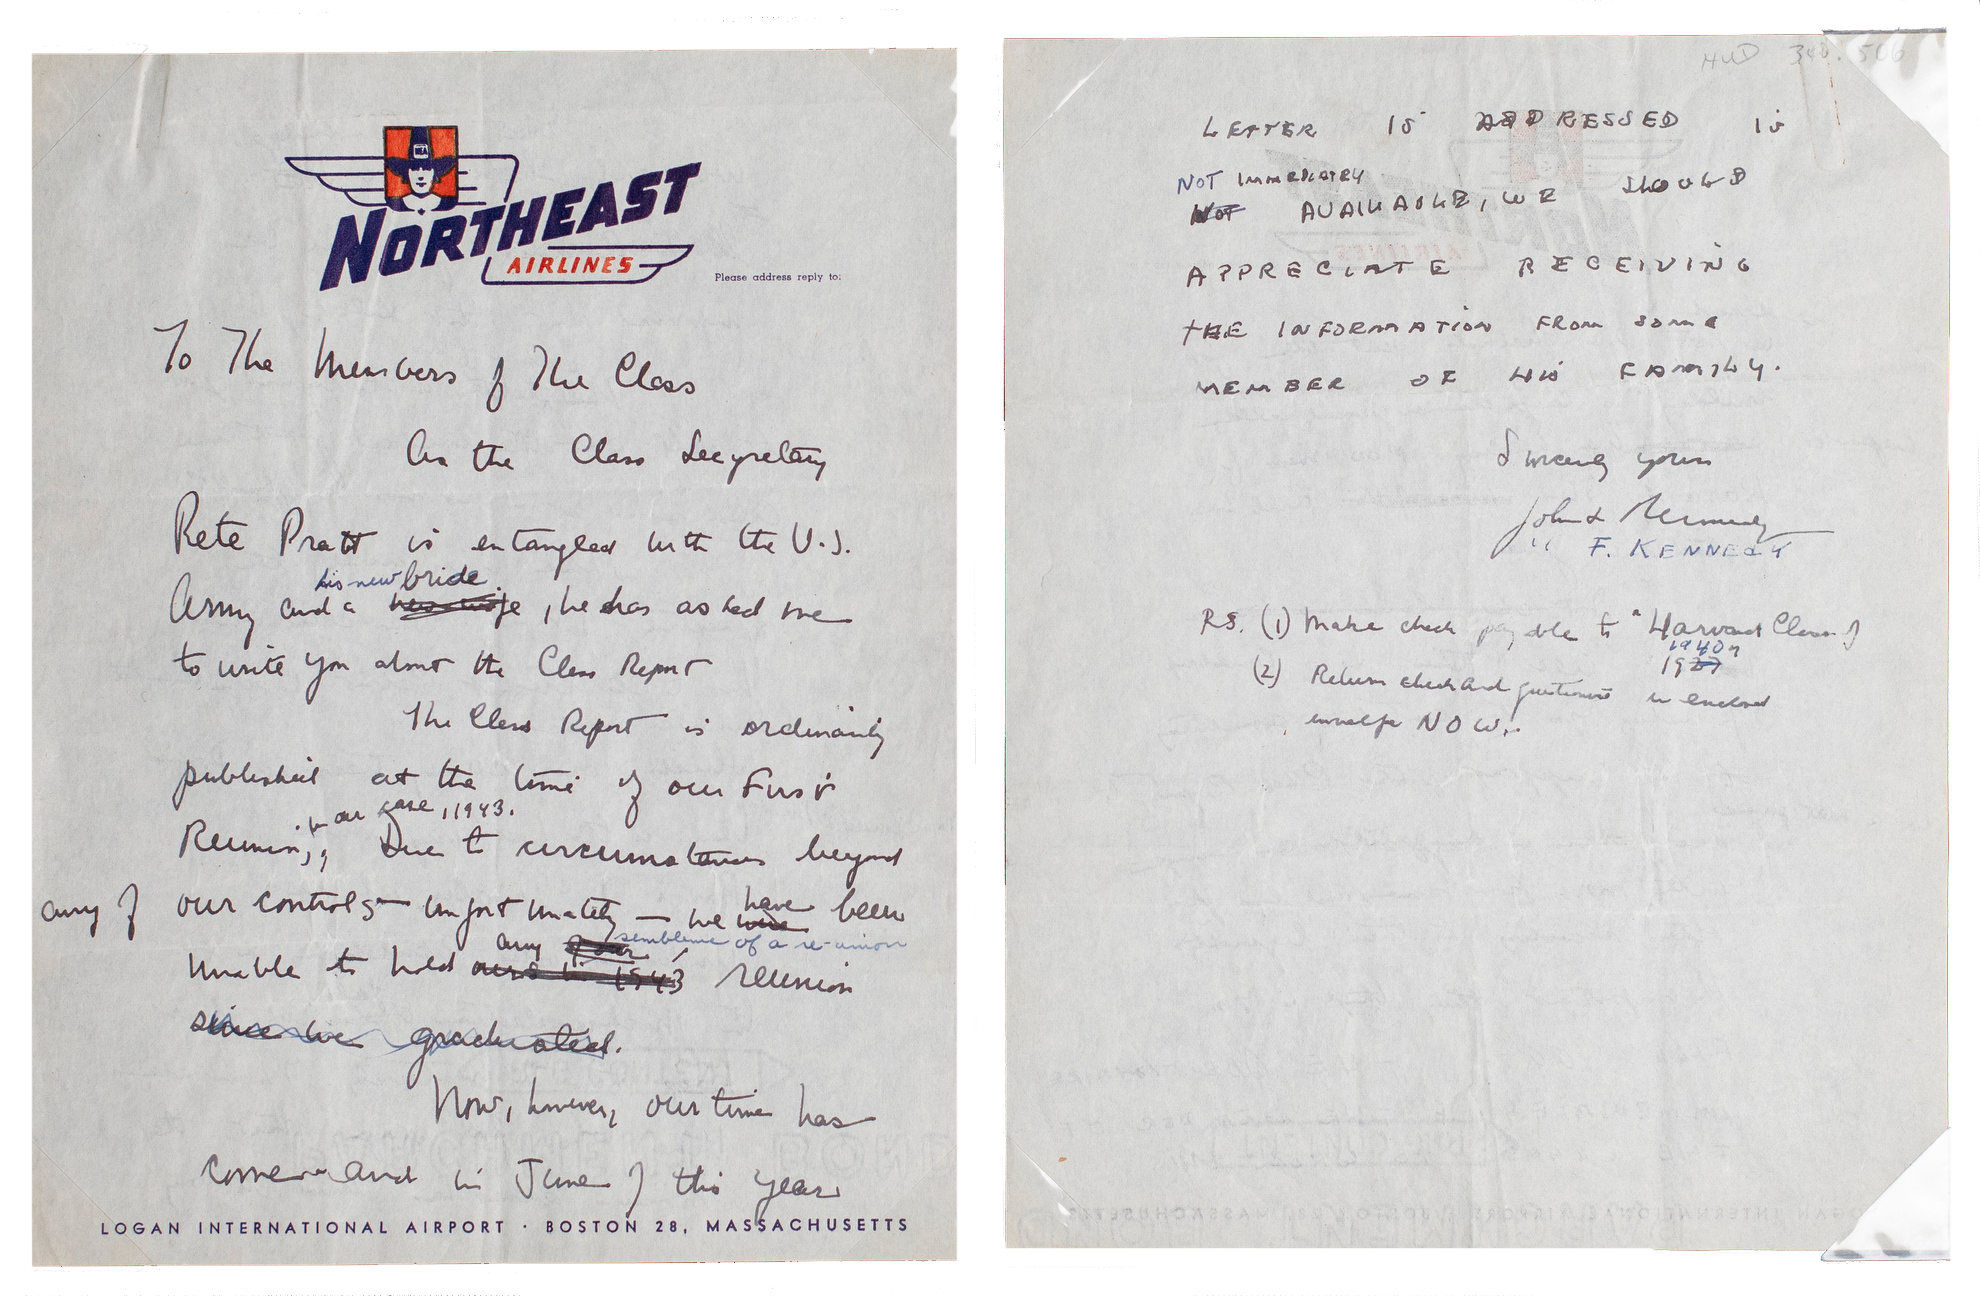 NORTHEAST
AIRLINES
Please address reply to:
To The Members of The Class
As the Class Secretary
Pete Pratt is entangled with the U.S.
his new bride
Army and a new wife, he has asked me
to write you about the Class Report
The Class Report is ordinarily
published at the time of our First
in our case, 1943.
Reunion, Due to circumstances beyond
have
any of our controls — unfortunately — we were been
any of our semblence of a re-union
unable to hold ours in 1943 reunion
since we graduated.
Now, however, our time has
come — and in June of this year
LOGAN INTERNATIONAL AIRPORT · BOSTON 28, MASSACHUSETTS
HUD 340.506
LETTER IS ADDRESSED IS
NOT IMMEDIATELY
NOT AVAILABLE, WE SHOULD
APPRECIATE RECEIVING
THE INFORMATION FROM SOME
MEMBER OF HIS FAMILY.
Sincerely yours
John F Kennedy
" F. KENNEDY
P.S. (1) Make check payable to "Harvard Class of
1940"
1937
(2) Return check and questionnaire in enclosed
envelope NOW.